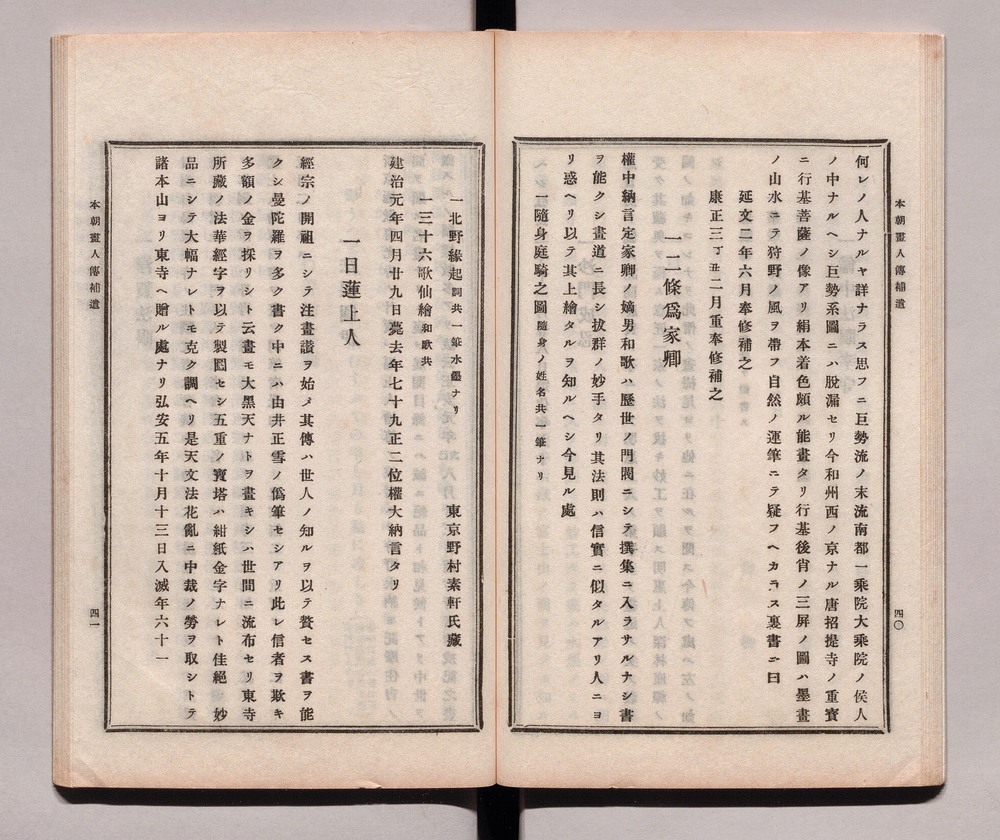 本朝畫人傳補遺
四〇
何レノ人ナルヤ詳ナラス思フニ巨勢流ノ末流南都一乘院大乘院ノ侯人
ノ中ナルヘシ巨勢系圖ニハ脱漏セリ今和州西ノ京ナル唐招提寺ノ重寶
ニ行基菩薩ノ像アリ絹本着色頗ル能畫タリ行基後背ノ三屏ノ圖ハ墨畫
ノ山水ニテ狩野ノ風ヲ帶フ自然ノ運筆ニテ疑フヘカラス裏書ニ曰
延文二年六月奉修補之
康正三丁丑二月重奉修補之
一二條爲家卿
權中納言定家卿ノ嫡男和歌ハ歷世ノ門閥ニシテ撰集ニ入ラサルナシ書
ヲ能クシ畫道ニ長シ拔群ノ妙手タリ其法則ハ信實ニ似タルアリ人ニヨ
リ惑ヘリ以テ其上繪タルヲ知ルヘシ今見ル處
一隨身庭騎之圖隨身ノ姓名共一筆ナリ
一北野緣起詞共一筆水墨ナリ
一三十六歌仙繪和歌共 東京野村素軒氏藏
建治元年四月廿九日薨去年七十九正二位權大納言タリ
一日蓮上人
經宗ノ開祖ニシテ注畫讃ヲ始メ其傳ハ世人ノ知ルヲ以テ贅セス書ヲ能
クシ曼陀羅ヲ多ク書ク中ニハ由井正雪ノ僞筆セシアリ此レ信者ヲ欺キ
多額ノ金ヲ採リシト云畫モ大黑天ナトヲ畫キシハ世間ニ流布セリ東寺
所藏ノ法華經字ヲ以テ製圖セシ五重ノ寶塔ハ紺紙金字ナレト佳絕妙
品ニシテ大幅ナレトモ克ク調ヘリ是天文法花亂ニ中裁ノ勞ヲ取シトテ
諸本山ヨリ東寺ヘ贈ル處ナリ弘安五年十月十三日入滅年六十一
本朝畫人傳補遺
四一